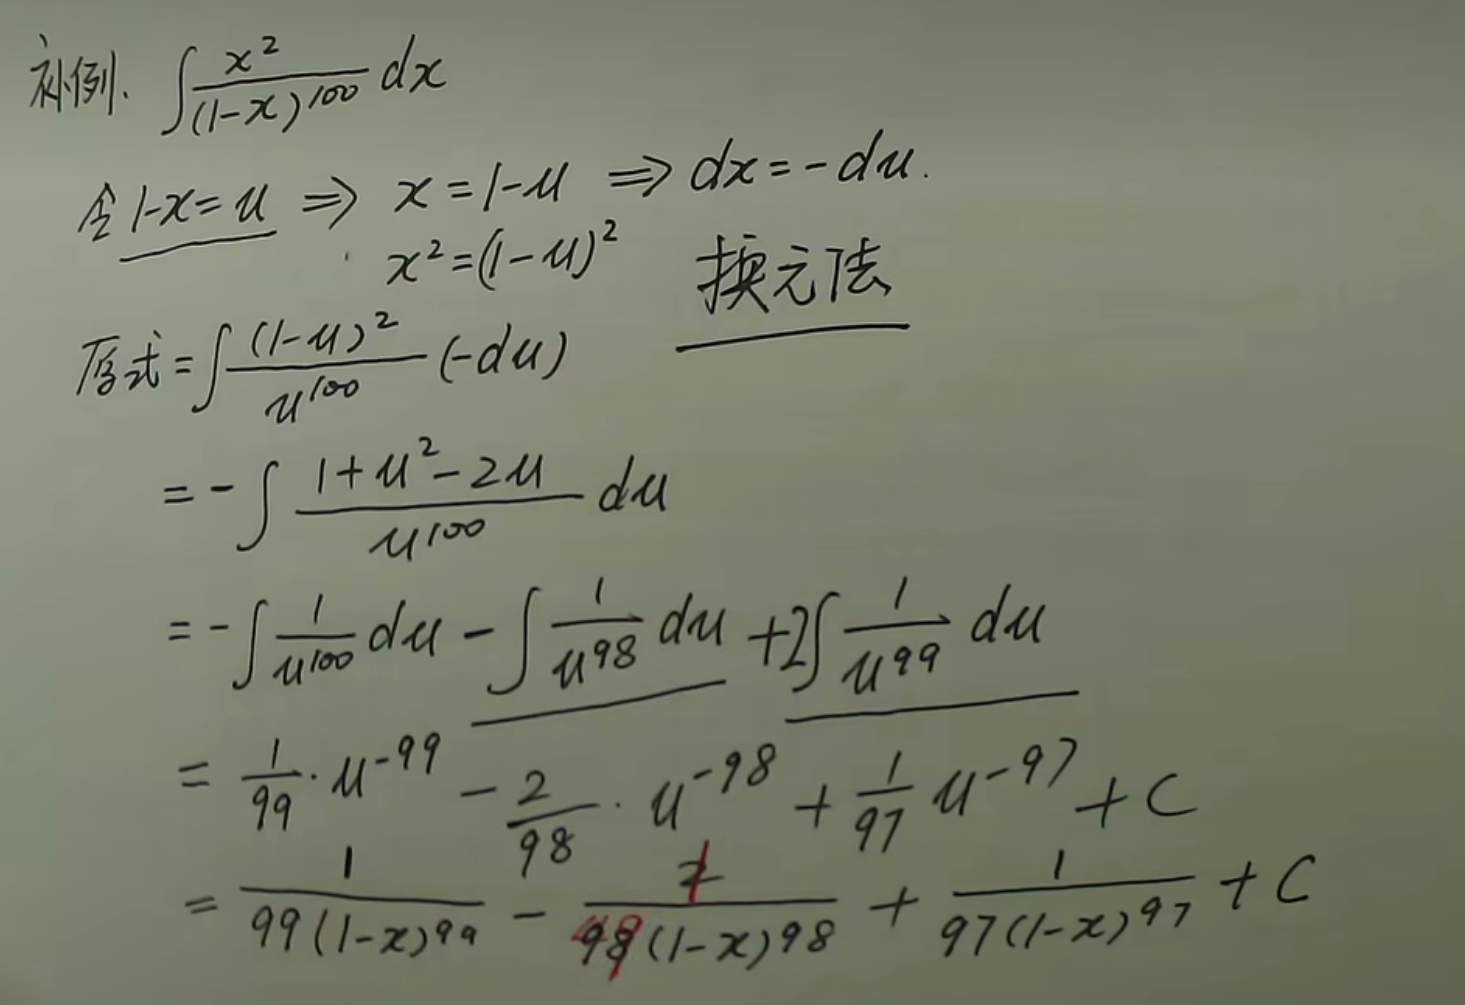 补例. ∫ x²/(1-x)¹⁰⁰ dx
令 1-x=u ⇒ x=1-u ⇒ dx=-du.
x²=(1-u)² 换元法
原式=∫ (1-u)²/u¹⁰⁰ (-du)
=-∫ (1+u²-2u)/u¹⁰⁰ du
=-∫ 1/u¹⁰⁰ du - ∫ 1/u⁹⁸ du +2∫ 1/u⁹⁹ du
= 1/99 · u⁻⁹⁹ - 2/98 · u⁻⁹⁸ + 1/97 u⁻⁹⁷ + C
= 1/(99(1-x)⁹⁹) - 1/(49(1-x)⁹⁸) + 1/(97(1-x)⁹⁷) + C